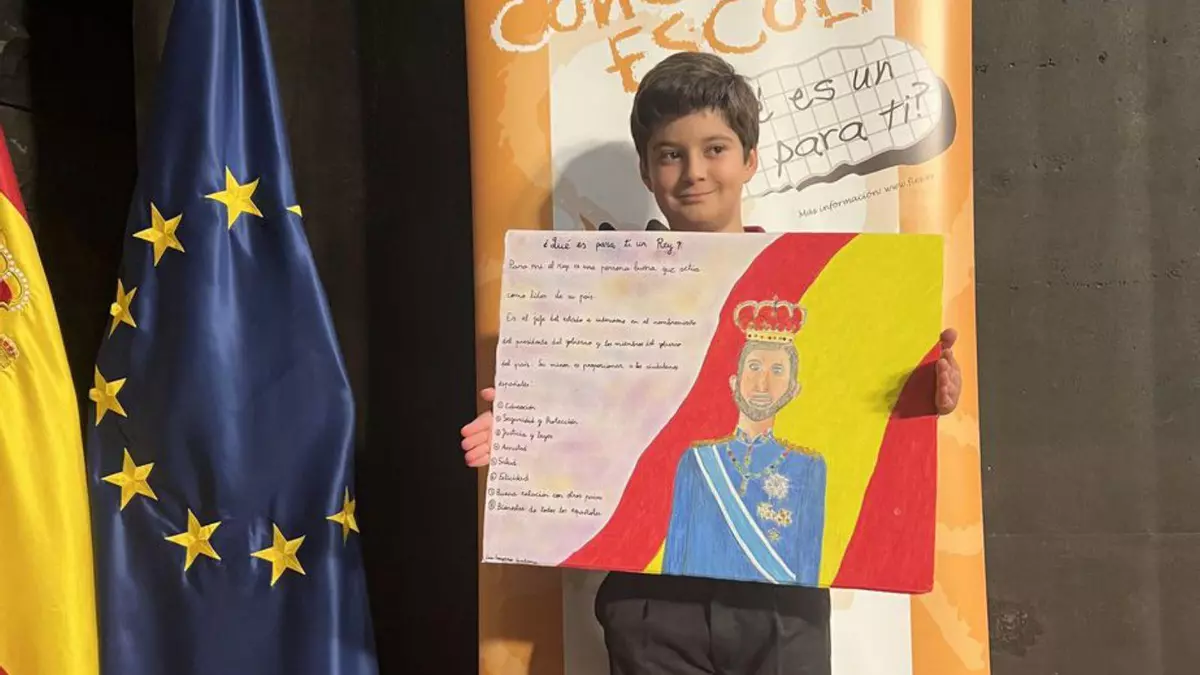 ESCOL
es un
para ti?
Más información: www.fies.es
¿Qué es para ti un Rey?
Para mi el Rey es una persona buena que actúa
como líder de su país.
Es el jefe del estado e interviene en el nombramiento
del presidente del gobierno y los miembros del gobierno
del país. Su mision es proporcionar a los ciudadanos
españoles:
① Educación
② Seguridad y Protección
③ Justicia y Leyes
④ Amistad
⑤ Salud
⑥ Felicidad
⑦ Buena relacion con otros paises
⑧ Bienestar de todos los españoles